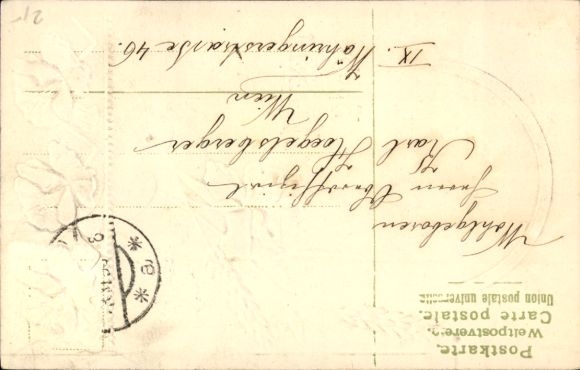 Postkarte.
Weltpostverein.
Carte postale.
Union postale universelle
Wohlgeboren
Herrn
Karl Hoegelsberger
Wien
IX. Währingerstrasse 46.
* e *
21-